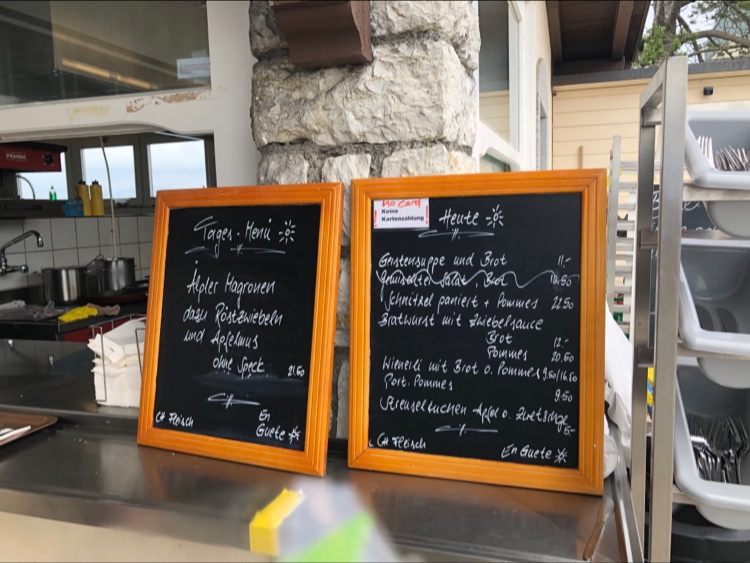 Tages-Menü
Älpler Magronen
dazu Röstzwiebeln
und Apfelmus
ohne Speck 21.50
CH Fleisch
En
Guete
No Card
Keine
Kartenzahlung
Heute
Gerstensuppe und Brot 11.-
Gemischter Salat Brot 10.50
Schnitzel paniert + Pommes 22.50
Bratwurst mit Zwiebelsauce
Brot 12.-
Pommes 20.50
Wienerli mit Brot o. Pommes 9.50/16.50
Port. Pommes
9.50
Streuselkuchen Apfel o. Zwetschge
5.-
CH Fleisch
En Guete